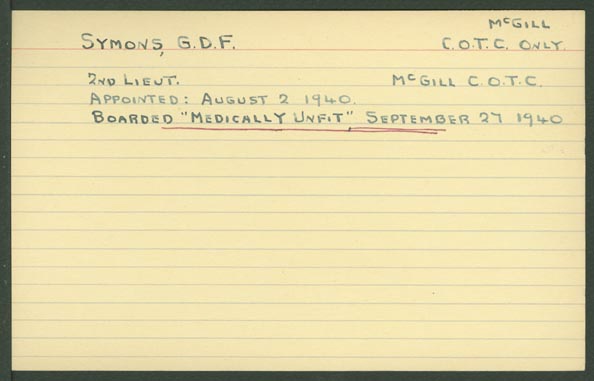 McGILL
SYMONS, G.D.F. C.O.T.C. ONLY.
2ND LIEUT. McGILL C.O.T.C.
APPOINTED: AUGUST 2 1940.
BOARDED "MEDICALLY UNFIT", SEPTEMBER 27 1940